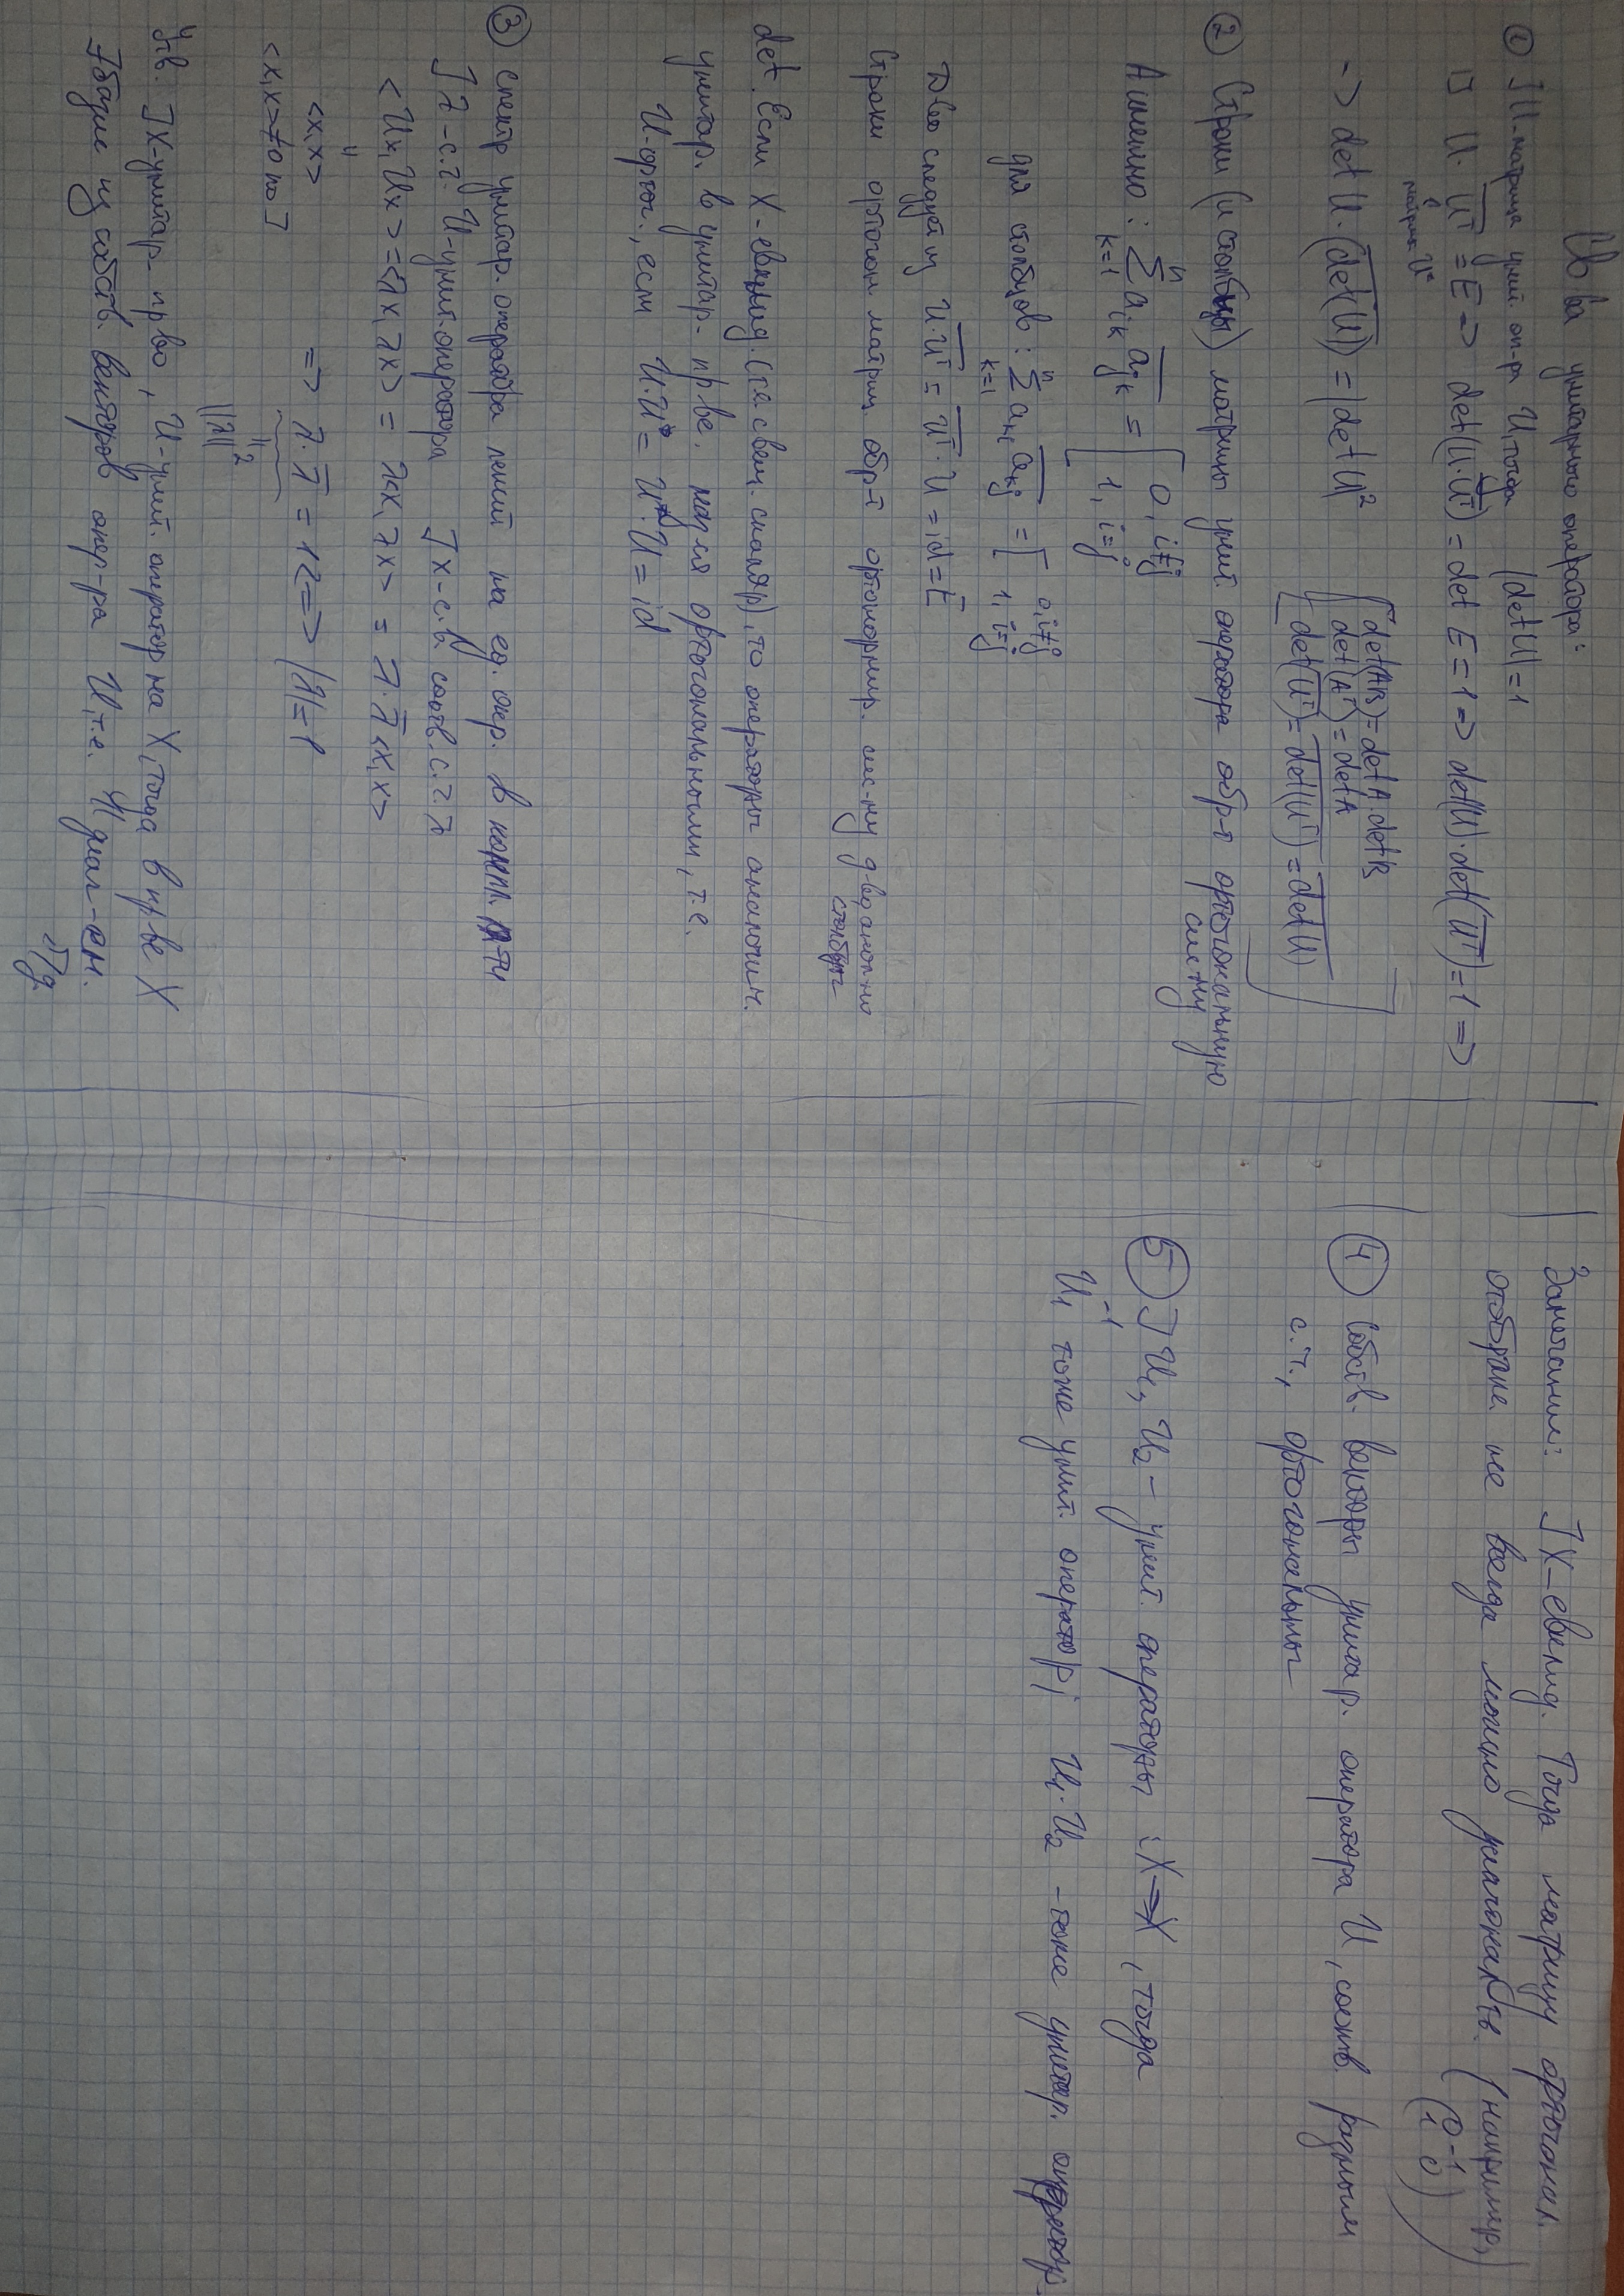 Св-ва унитарного оператора:
① ] U-матрица унит. оп-ра U, тогда |det U| = 1
□ U·U̅ᵀ = E => det(U·U̅ᵀ) = det E = 1 => det(U)·det(U̅ᵀ) = 1 =>
матрица U*
[ det(AB) = det A·det B
det(Aᵀ) = det A
det(U̅ᵀ) = d̅e̅t̅(̅U̅ᵀ̅)̅ = d̅e̅t̅ ̅U̅ ]
=> det U·(d̅e̅t̅(̅U̅)̅) = |det U|²
② Строки (и столбцы) матрицы унит. оператора обр-т ортогональную
сист-му
А именно: ∑ₖ₌₁ⁿ aᵢₖ a̅ⱼₖ = [ 0, i≠j
1, i=j
для столбцов: ∑ₖ₌₁ⁿ aₖᵢ a̅ₖⱼ = [ 0, i≠j
1, i=j
Д-во следует из U·U̅ᵀ = U̅ᵀ·U = id = E
Строки ортогон. матриц обр-т ортонормир. сис-му д-во, аналогично
столбцы
det. Если X-евклид. (т.е. с вещ. скаляр), то операторы аналогич.
унитар. в унитар. пр-ве. назыв ортогональными, т.е.
U-ортог., если U·U* = U*·U = id
③ спектр унитар. оператора лежит на ед. окр. в компл. пл-ти
] λ-с.ч. U-унит. оператора ] x-с.в. соотв. с.ч. λ
<Ux, Ux> = <λx, λx> = λ<x, λx> = λ·λ̅<x, x>
"
<x, x> => λ·λ̅ = 1 <=> |λ| = 1
<x, x> ≠ 0 по ] "
|λ|²
Утв. ] X-унитар. пр-во, U-унит. оператор на X, тогда в пр-ве X
∃ базис из собств. векторов опер-ра U, т.е. U диаг-ен.
Б/д
Замечание: ] X-евклид. Тогда матрицу ортогонал.
отображ. не всегда можно диагонал-ть. (например,
( 0 -1
1 0 ) )
④ Собств. векторы унитар. оператора U, соотв. разным
с.ч., ортогональны
⑤ ] U₁, U₂ - унит. операторы : X→X, тогда
U₁⁻¹ тоже унит. оператор; U₁·U₂ - тоже унитар. оператор.